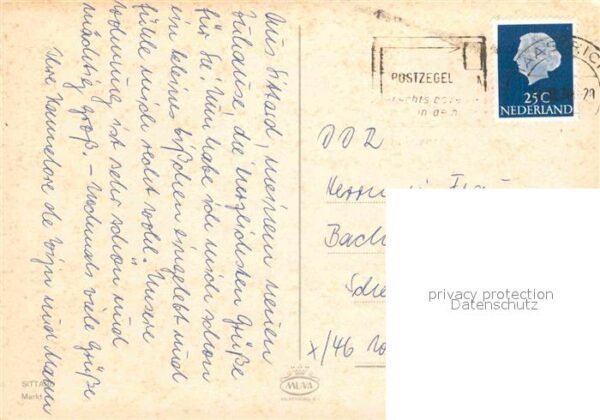 Aus Sittard, meinem neuen
Zuhause, die herzlichsten Grüße
für Sie! Nun habe ich mich schon
ein kleines bißchen eingelebt und
fühle mich recht wohl. Unsere
Wohnung ist sehr schön und
mächtig groß. – Nochmals viele Grüße
Ihre Hannelore de Wijn und Mann
SITTARD
Markt
MUVA
POSTZEGEL
rechts boven
in de
MAASTRICHT
25 C
NEDERLAND
DDR
Herrn
Bach
X/46
privacy protection
Datenschutz